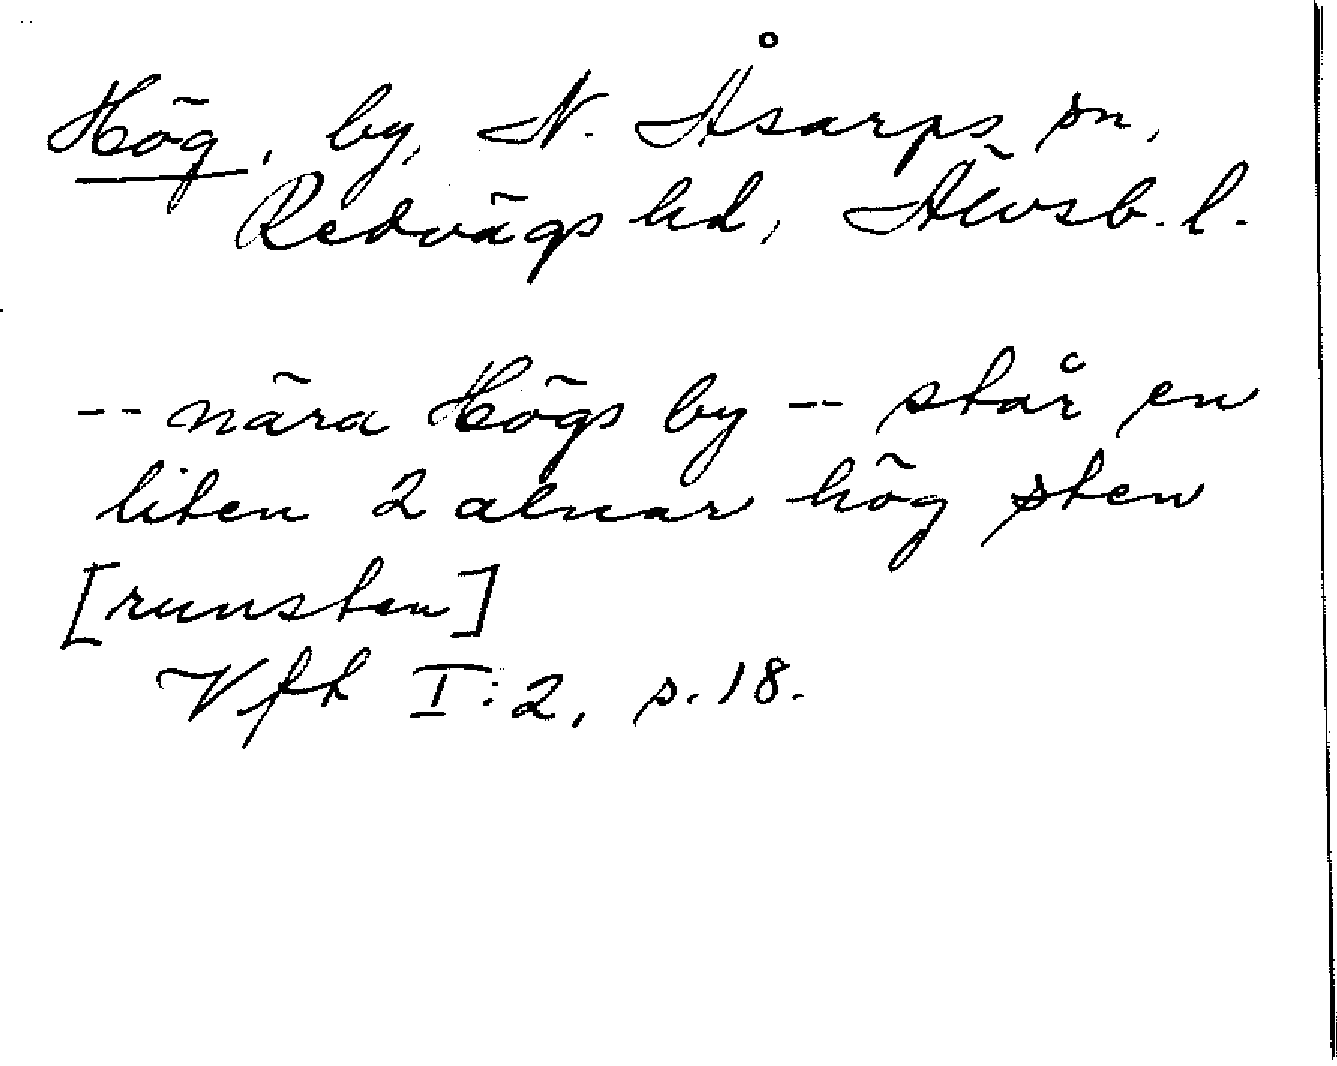 Hög, by, N. Åsarps sn,
Redvägs hd, Älvsb. l.
-- nära Högs by -- står en
liten 2 alnar hög sten
[runsten]
Vfh I:2, s. 18.